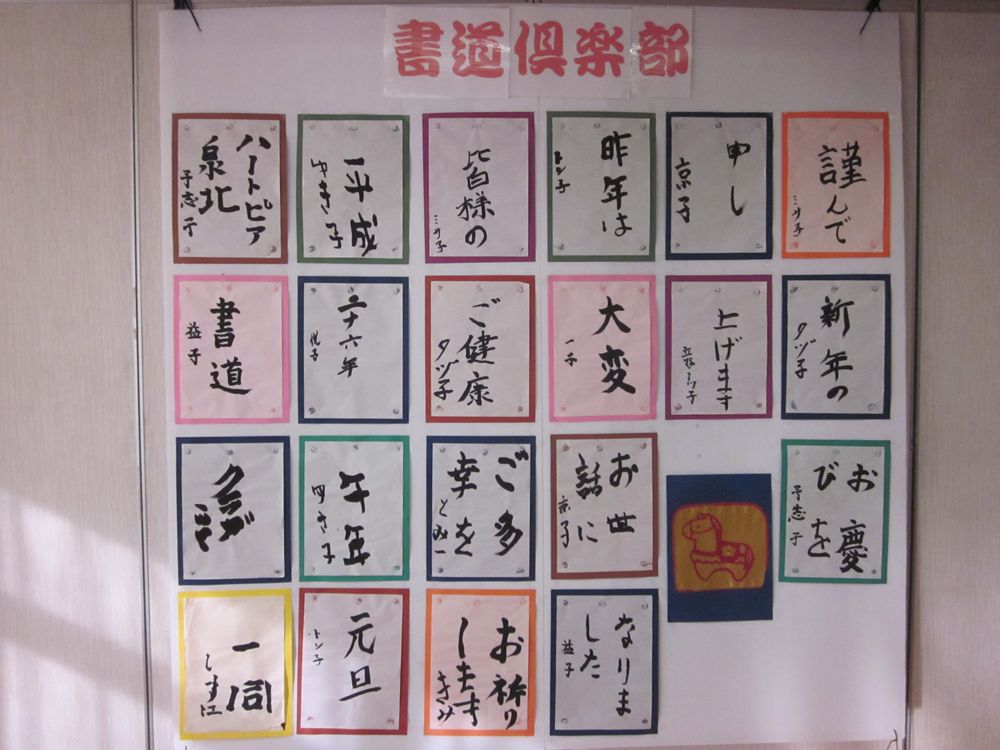 書道倶楽部
謹んで
ミサ子
新年の
タヅ子
お慶
びを
申し
京子
上げます
昨年は
トシ子
大変
一子
お世
話に
京子
なりま
した
益子
皆様の
ミサ子
ご健康
タヅ子
ご多
幸を
お祈り
します
きみ
平成
ゆき子
二十六年
悦子
午年
元旦
トシ子
ハートピア
泉北
書道
益子
クラブ
一同
しず江